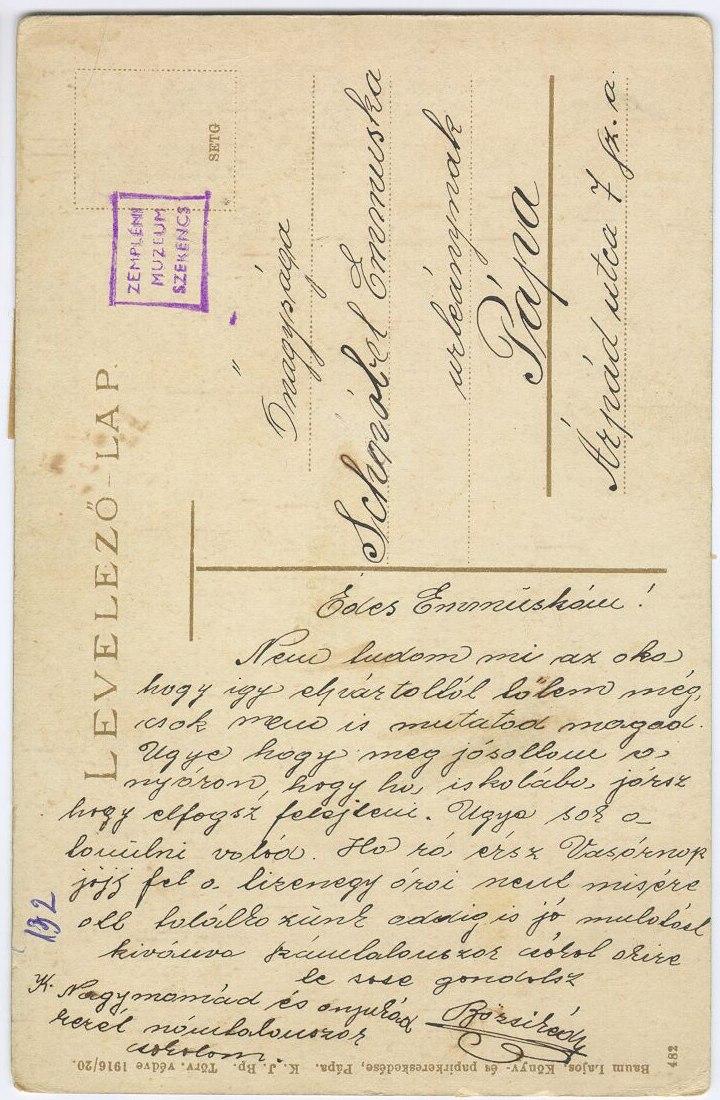 LEVELEZŐ-LAP.
SETG
ZEMPLÉNI
MUZEUM
SZERENCS
Őnagysága
Schnóbel Emmuska
urleánynak
Pápa
Árpád utca 7 sz. a.
Édes Emmúskám!
Nem tudom mi az oka
hogy igy elpártoltól tőlem még
csak nem is mutatod magad.
Ugye hogy meg jósoltam a
nyáron, hogy ha iskolába jársz
hogy elfogsz felejteni. Ugye sok a
tanulni valód. Ha rá érsz Vasárnap
jöjj fel a tizenegy órai nagy misére
ott találkozunk addig is jó mulatást
kivánva számtalanszor csókol akire
te sose gondolsz
Bözsikéd
Nagymamád és anyukád
kezét számtalanszor
csókolom.
132
Baum Lajos, Könyv- és papirkereskedése, Pápa. K. J. Bp. Törv. védve 1916/20.
482